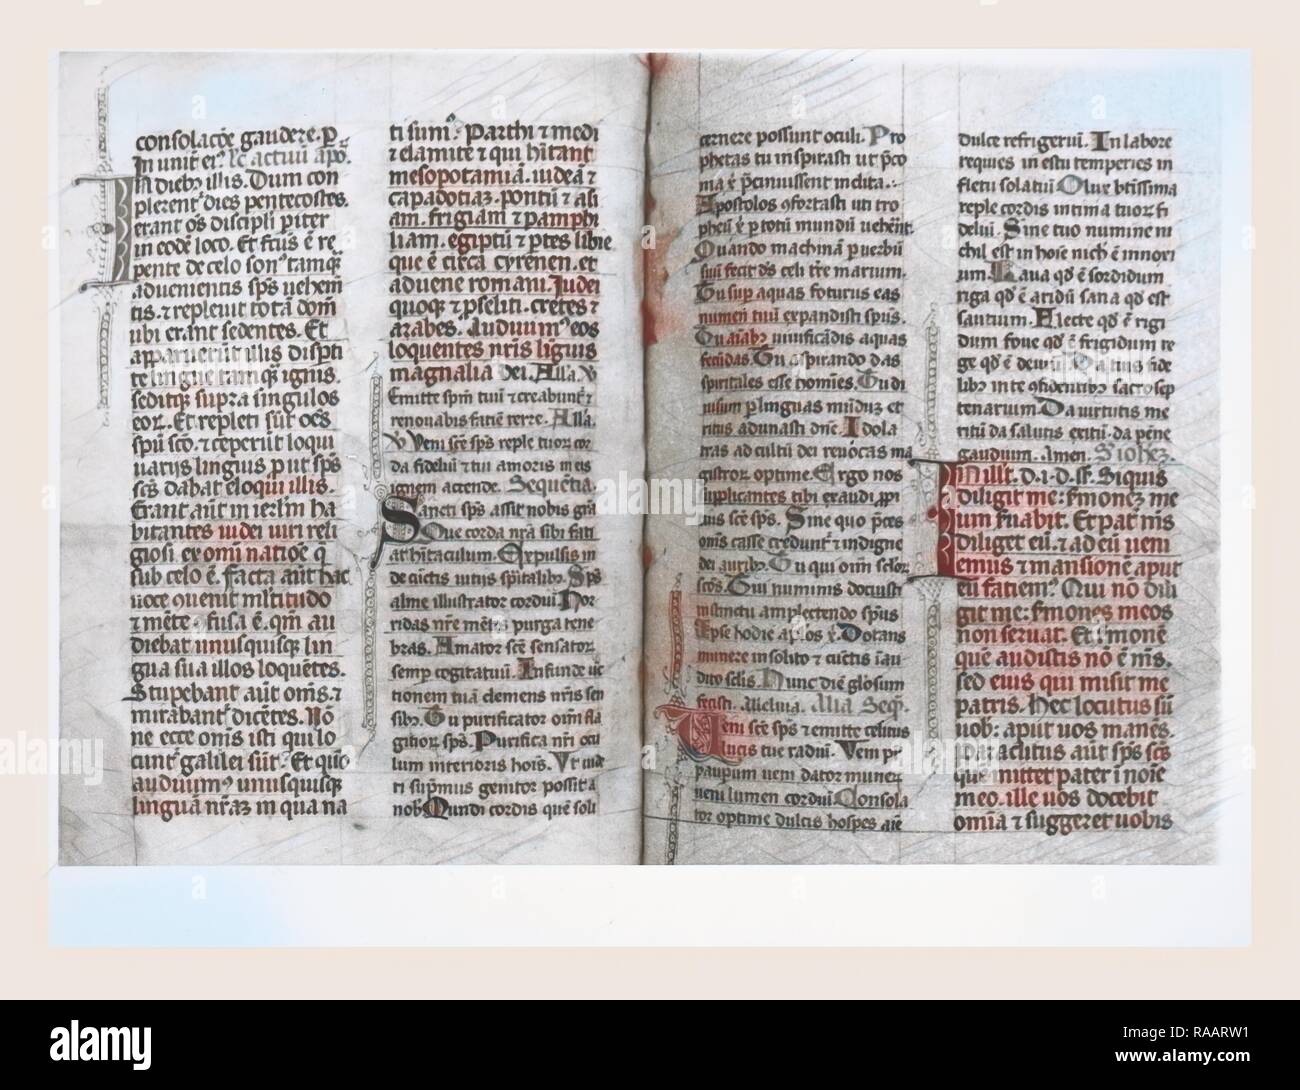 consolacõe gaudere. p̄
In unit̄ ei⁹. lc̄ actuū apo.
In dieb⁹ illis. Dum con
plerent̄ dies pentecostes.
erant oēs discipli p̄iter
in codē loco. Et fc̄us ē re
pente de celo son⁹ tamq̄
aduenientis sp̄s uehem̄
tis. ⁊ repleuit totā dom̄
ubi erant sedentes. Et
apparuerūt illis disp̄ti
te lingue tam q̄ ignis.
seditq̄ supra singulos
eoꝝ. Et repleti sūt oēs
spū sc̄o. ⁊ ceperūt loqui
uarijs linguis p̄ut sp̄s
sc̄s dabat eloqui illis.
Erant aūt in ierlm̄ ha
bitantes iudei uiri reli
giosi ex omi natiōe q̄
sub celo ē. Facta aūt hac
uoce ꝯuenit m̄ltitudo
⁊ mēte ꝯfusa ē. qm̄ au
diebat unusquisq̄ lin
gua sua illos loquētes.
Stupebant aūt om̄s. ⁊
mirabant̄ dicētes. Nō
ne ecce om̄s isti qui lo
cunt̄ galilei sūt. Et quo
audiuim⁹ unusquisq̄
linguā nr̄aꝫ in qua na
ti sum⁹. Parthi ⁊ medi
⁊ elamite ⁊ qui hītant
mesopotamiā. iudeā ⁊
capadotiaꝫ. pontū ⁊ asi
am. frigiam ⁊ pamphi
liam. egiptū ⁊ p̄tes libie
que ē circa cyrenen. et
aduene romani. Iudei
quoq̄ ⁊ p̄seliti. cretes ⁊
arabes. Audiuim⁹ eos
loquentes nr̄is liguis
magnalia dei. Alla. ℣
Emitte spm̄ tuū ⁊ creabunt̄ ⁊
renouabis faciē terre. Alla.
℣. Veni sc̄e sp̄s reple tuoꝝ cor
da fideliū ⁊ tui amoris in eis
ignem accende. Sequētia.
Sancti sp̄s assit nobis grā
Que corda nr̄a sibi faci
at hītaculum. Expulsis in
de cūctis uitijs sp̄italib⁹. Sp̄s
alme illustrator cordiū Hor
ridas nr̄e mētis purga tene
bras. Amator sc̄e sensatoꝝ
semp cogitatuū. Infunde ūc
tionem tuā clemens nr̄is sen
sib⁹. Tu purificator om̄i fla
gitioꝝ sp̄s. Purifica nr̄i ocu
lum interioris hoīs. Vt uide
ri sup̄mus genitor possit a
nob̄ Mundi cordis quē soli
cernere possunt oculi. Pro
phetas tu inspirasti ut p̄co
nia x̄ p̄cinuissent inclita.
Apostolos ꝯfortasti uti tro
pheū x̄ p totū mundū ueherēt.
Quando machinā p uerbū
suū fecit d̄s celi tr̄e marium.
Tu sup aquas foturus eas
numen tuū expandisti sp̄us.
Tu aīab⁹ uiuificādis aquas
fecūdas. Tu aspirando das
spiritales esse homīes. Tu di
uisum p linguas mūduꝫ et
ritus adunasti dn̄e. Idola
tras ad cultū dei reuocas ma
gistroꝝ optime. Ergo nos
supplicantes tibi exaudi ꝓpi
cius sc̄e sp̄s. Sine quo p̄ces
om̄s casse credunt̄ ⁊ indigne
dei aurib⁹. Tu qui om̄i seclor̄
sc̄os. Tui numinis docuisti
instinctu amplectendo sp̄us
Ipse hodie ap̄los x̄. Dotans
munere insolito ⁊ cūctis īau
dito sclis. Hunc diē glosum
fecisti. alleluia. Alia Seq̄.
Veni sc̄e sp̄s ⁊ emitte celitus
lucis tue radiū. Veni p̄r
paupum ueni dator muneꝝ
ueni lumen cordiū Consola
tor optime dulcis hospes aīe
dulce refrigeriū. In labore
requies in estu temperies in
fletu solatiū O lux btissima
reple cordis intima tuoꝝ fi
deliū. Sine tuo numine ni
chil est in hoīe nich̄ ē innoxi
um. Laua qđ ē sordidum
riga qđ ē aridū sana qđ est
sautium. Flecte qđ ē rigi
dum foue qđ ē frigidum re
ge qđ ē deuiū. Da tuis fide
lib⁹ in te ꝯfidentib⁹ sacꝝ sep
tenarium. Da uirtutis me
ritū da salutis exitū. da pēne
gaudium. amen. S̄ iohez.
In ill t̄. d. i. d. s̄. Siquis
diligit me: s̄monez me
um s̄uabit. Et pat̄ m̄s
diliget eū. ⁊ ad eū veni
emus ⁊ mansionē aput
eū faciem⁹. Qui nō dili
git me: s̄mones meos
non seruat. Et s̄monē
quē audistis nō ē m̄s.
sed eius qui misit me
patris. Hec locutus sū
uob: aput uos manēs.
paraclitus aūt sp̄s sc̄s
quē mittet pater ī noīe
meo. ille uos docebit
om̄ia ⁊ suggeret uobis
alamy
Image ID: RAARW1
www.alamy.com